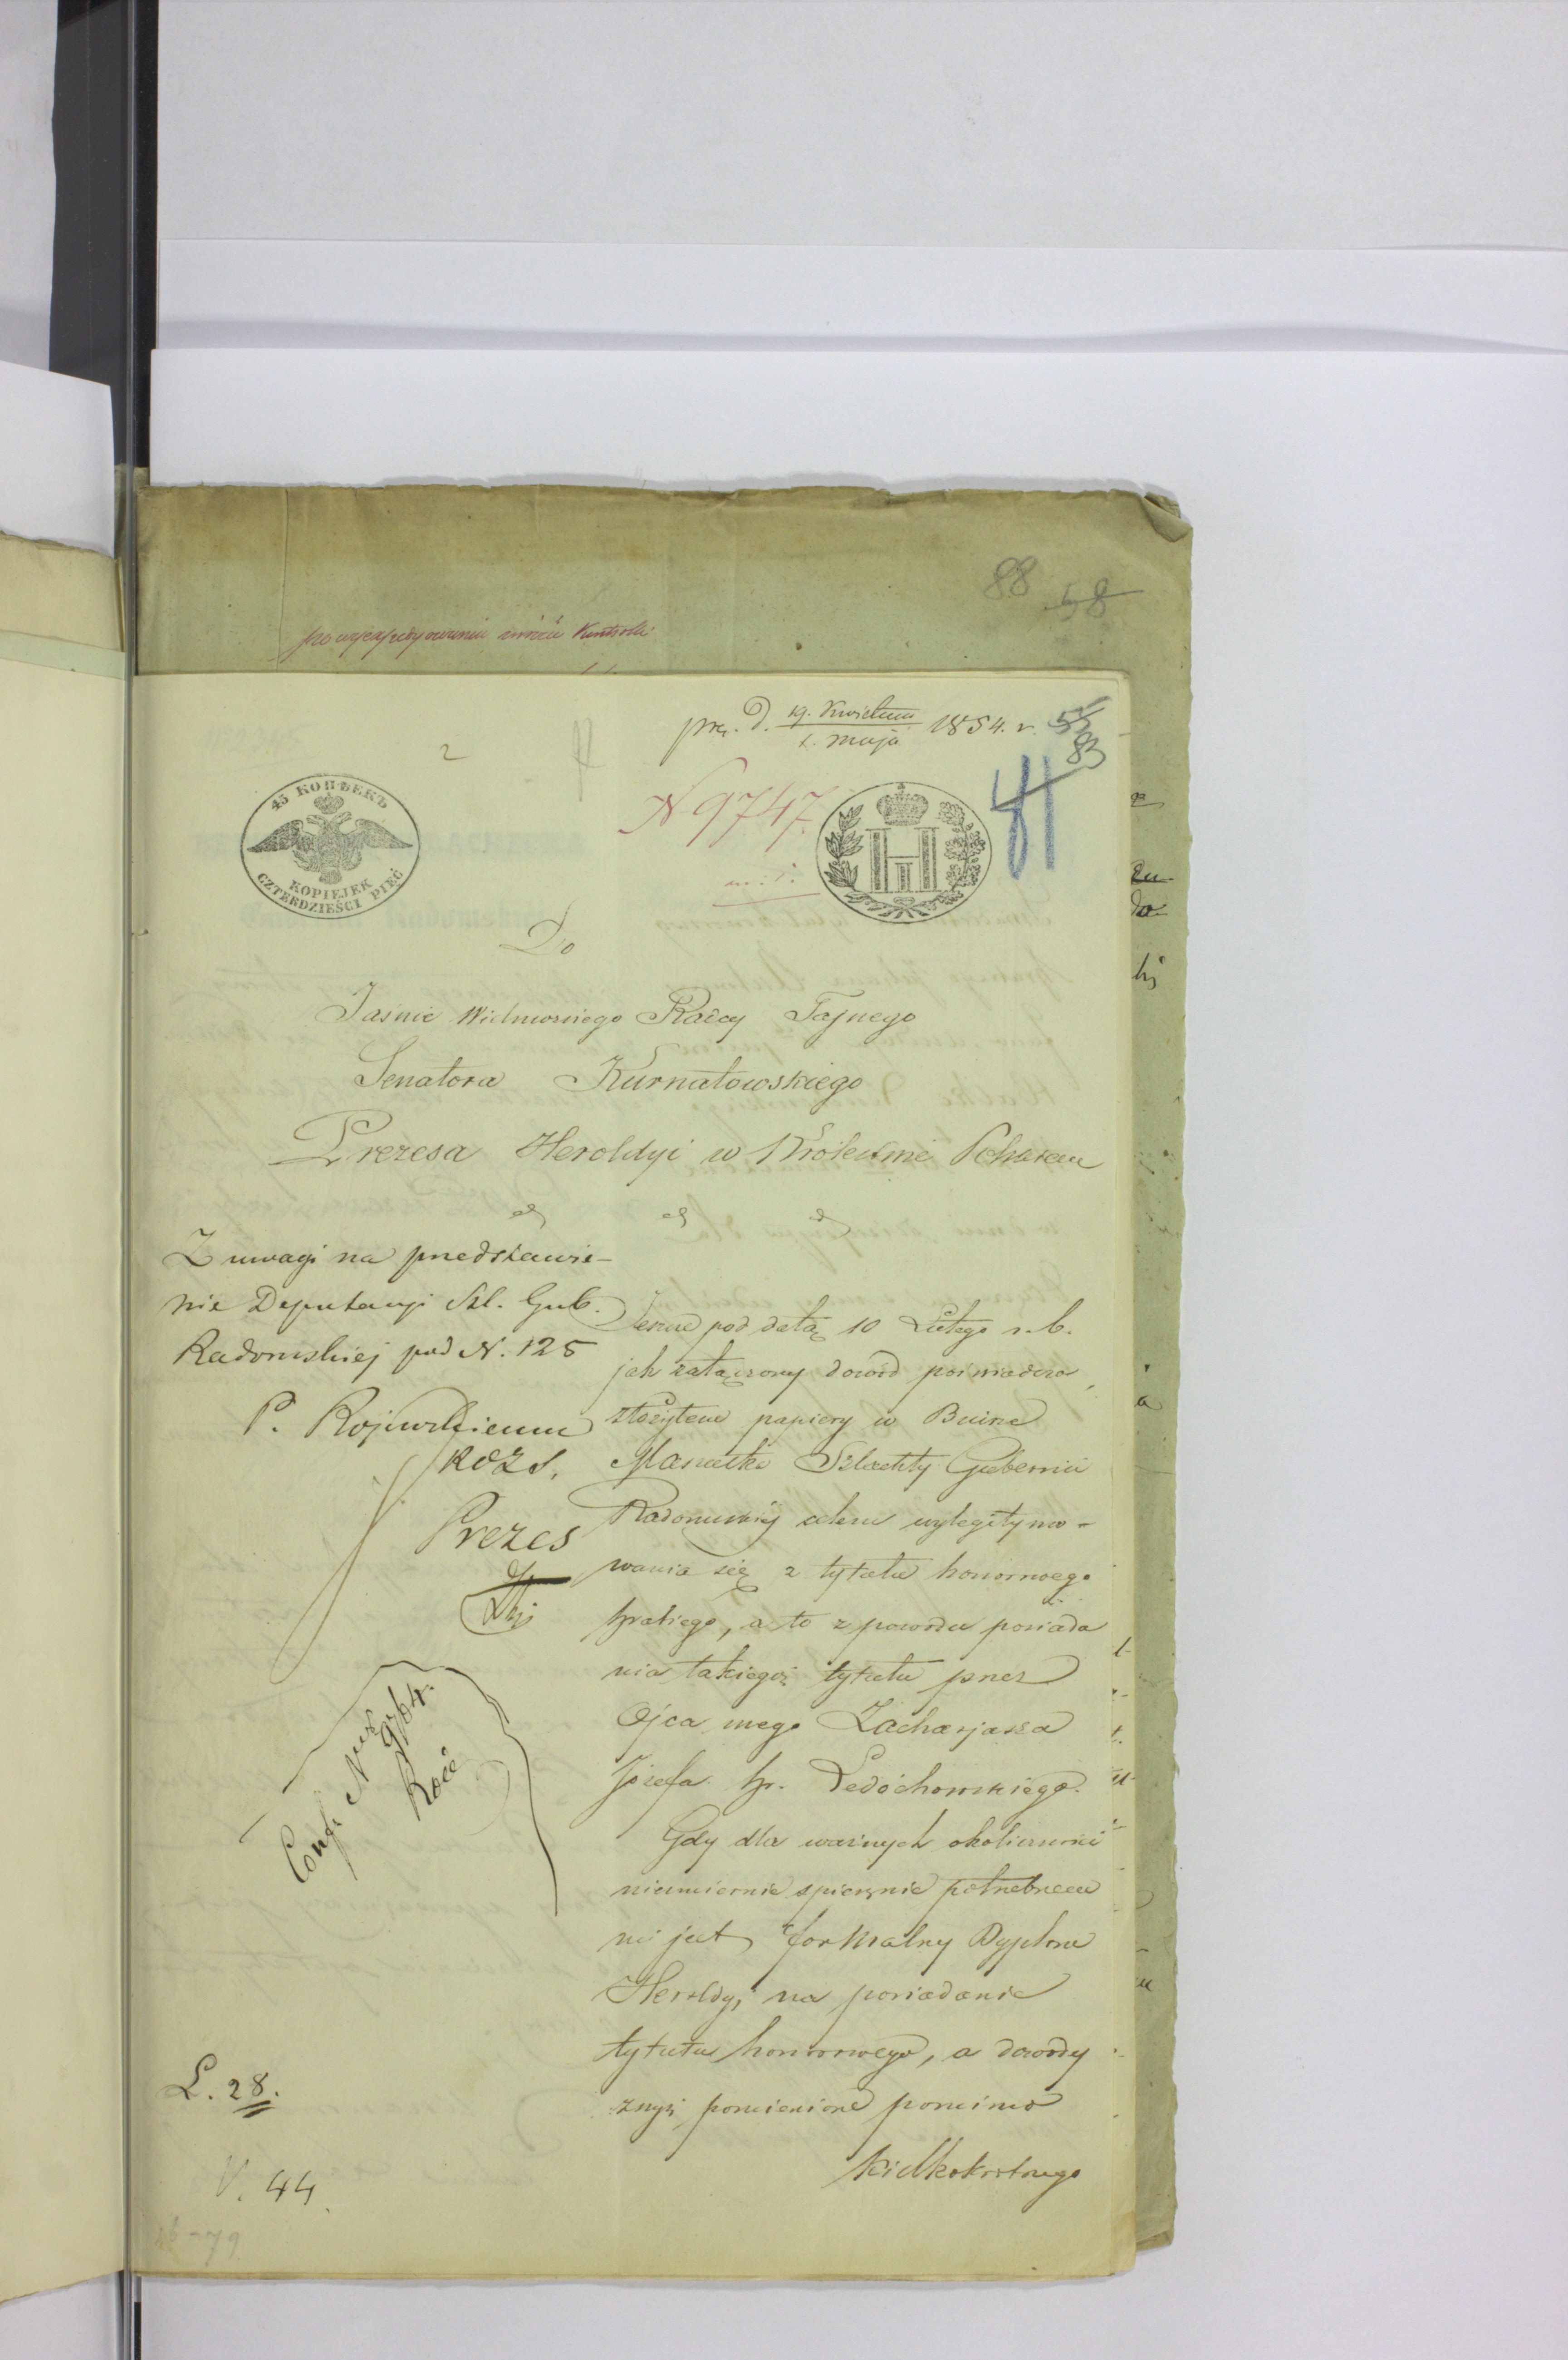 88 58
po wyexpedyowaniu zwrócić Kontroli
pre. d. 19. Kwietnia / 1. maja 1854. r. 55
83
2
N 9747.
41
45 КОПѢЕКЪ
KOPIEJEK
CZTERDZIEŚCI PIĘĆ
Do
Jaśnie Wielmożnego Radcy Tajnego
Senatora Kurnatowskiego
Prezesa Heroldyi w Królestwie Polskiem
Z uwagi na przedstawie-
nie Deputacyi Szl. Gub.
Radomskiej pod N. 125
P.
Prezes
Conf. Nrus 9764.
L. 28.
V. 44
Jeszcze pod datą 10 Lutego r. b.
jak załączony dowód poświadcza,
złożyłem papiery w Biurze
Marszałka Szlachty Gubernii
Radomskiéj celem wylegitymo-
wania się z tytułu honorowego
hrabiego, a to z powodu posiada
nia takiegoż tytułu przez
Ojca mego Zacharjasza
Józefa hr. Ledóchowskiego.
Gdy dla ważnych okoliczności
niezmiernie spiesznie potrzebnem
mi jest formalny Dyplom
Heroldyi na posiadanie
tytułu honorowego, a dowody
zwyż pomienione pomimo
kilkokrotnego